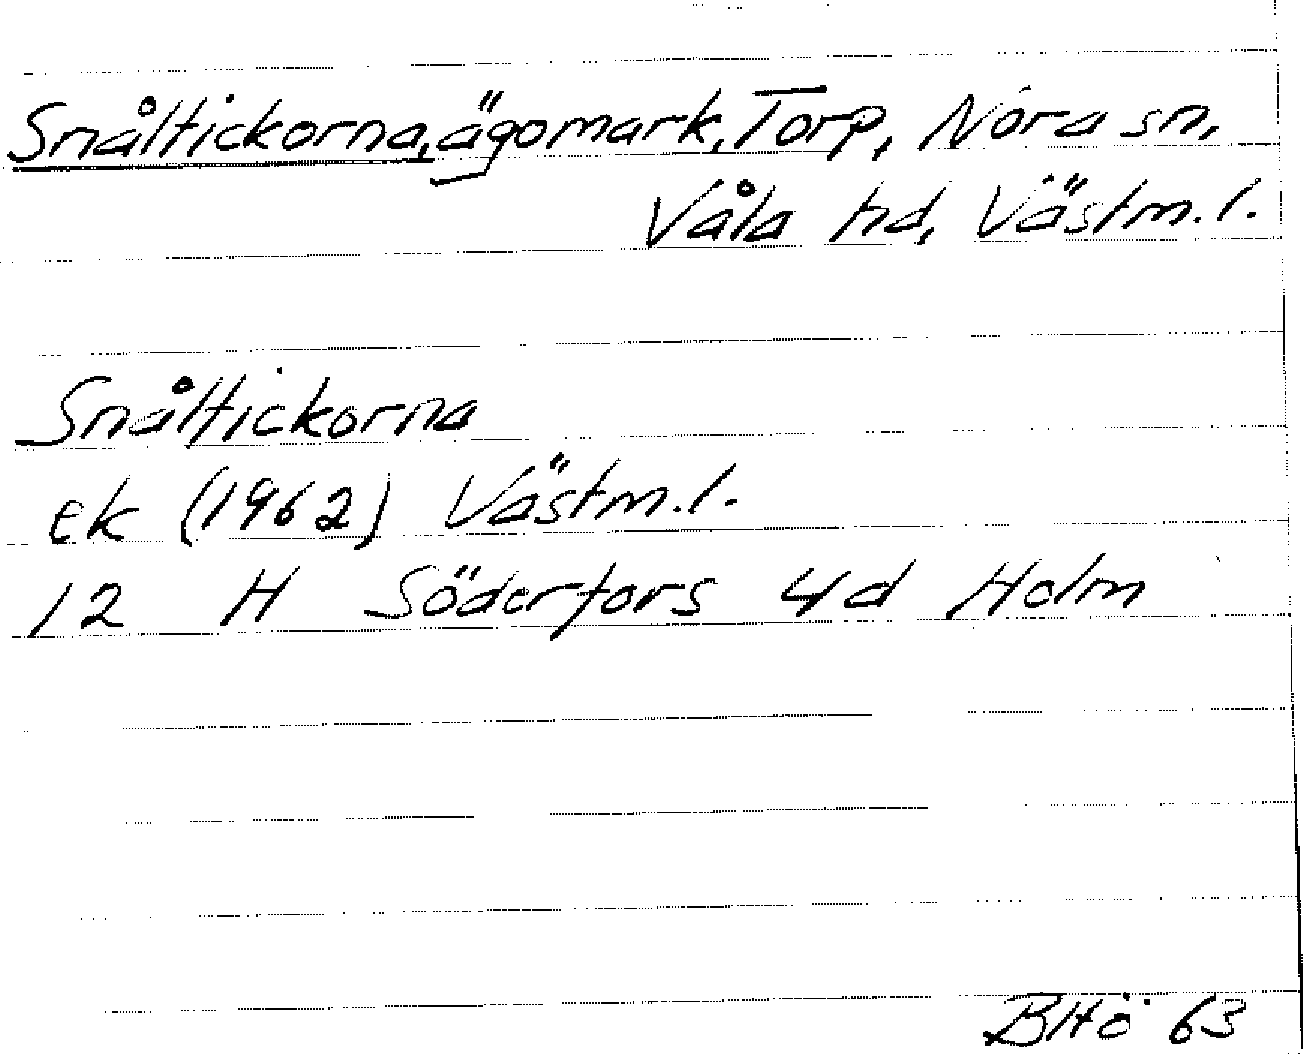 Snåltickorna, ägomark, Torp, Nora sn,
Våla hd, Västm. l.
Snåltickorna
ek (1962) Västm. l.
12 H Söderfors 4d Holm
BHö 63